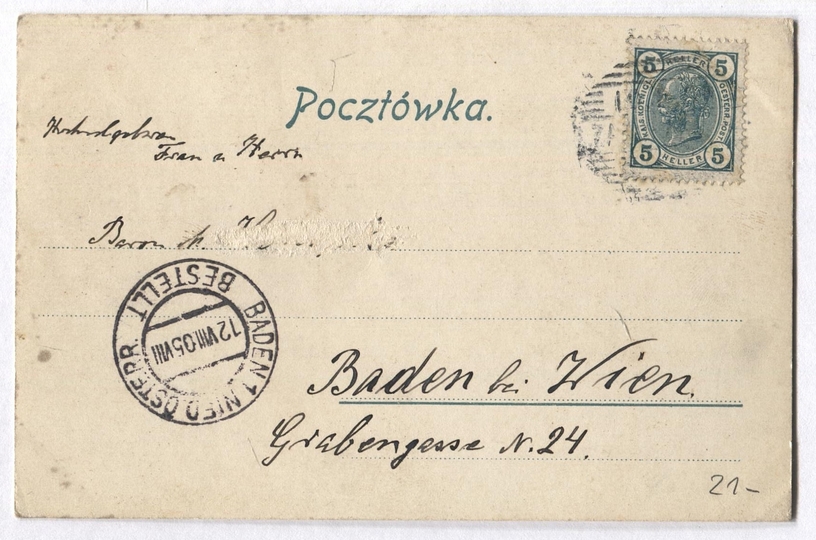 Pocztówka.
5 HELLER 5
KAIS. KOENIGL. OESTERR. POST
5 HELLER 5
Hochwolgeboren
Frau u Herrn
Baron M.
BESTELLT
BADEN 1 NIED. ÖSTERR.
12 VIII 05 VIII
Baden bei Wien.
Grabengasse N. 24.
21-